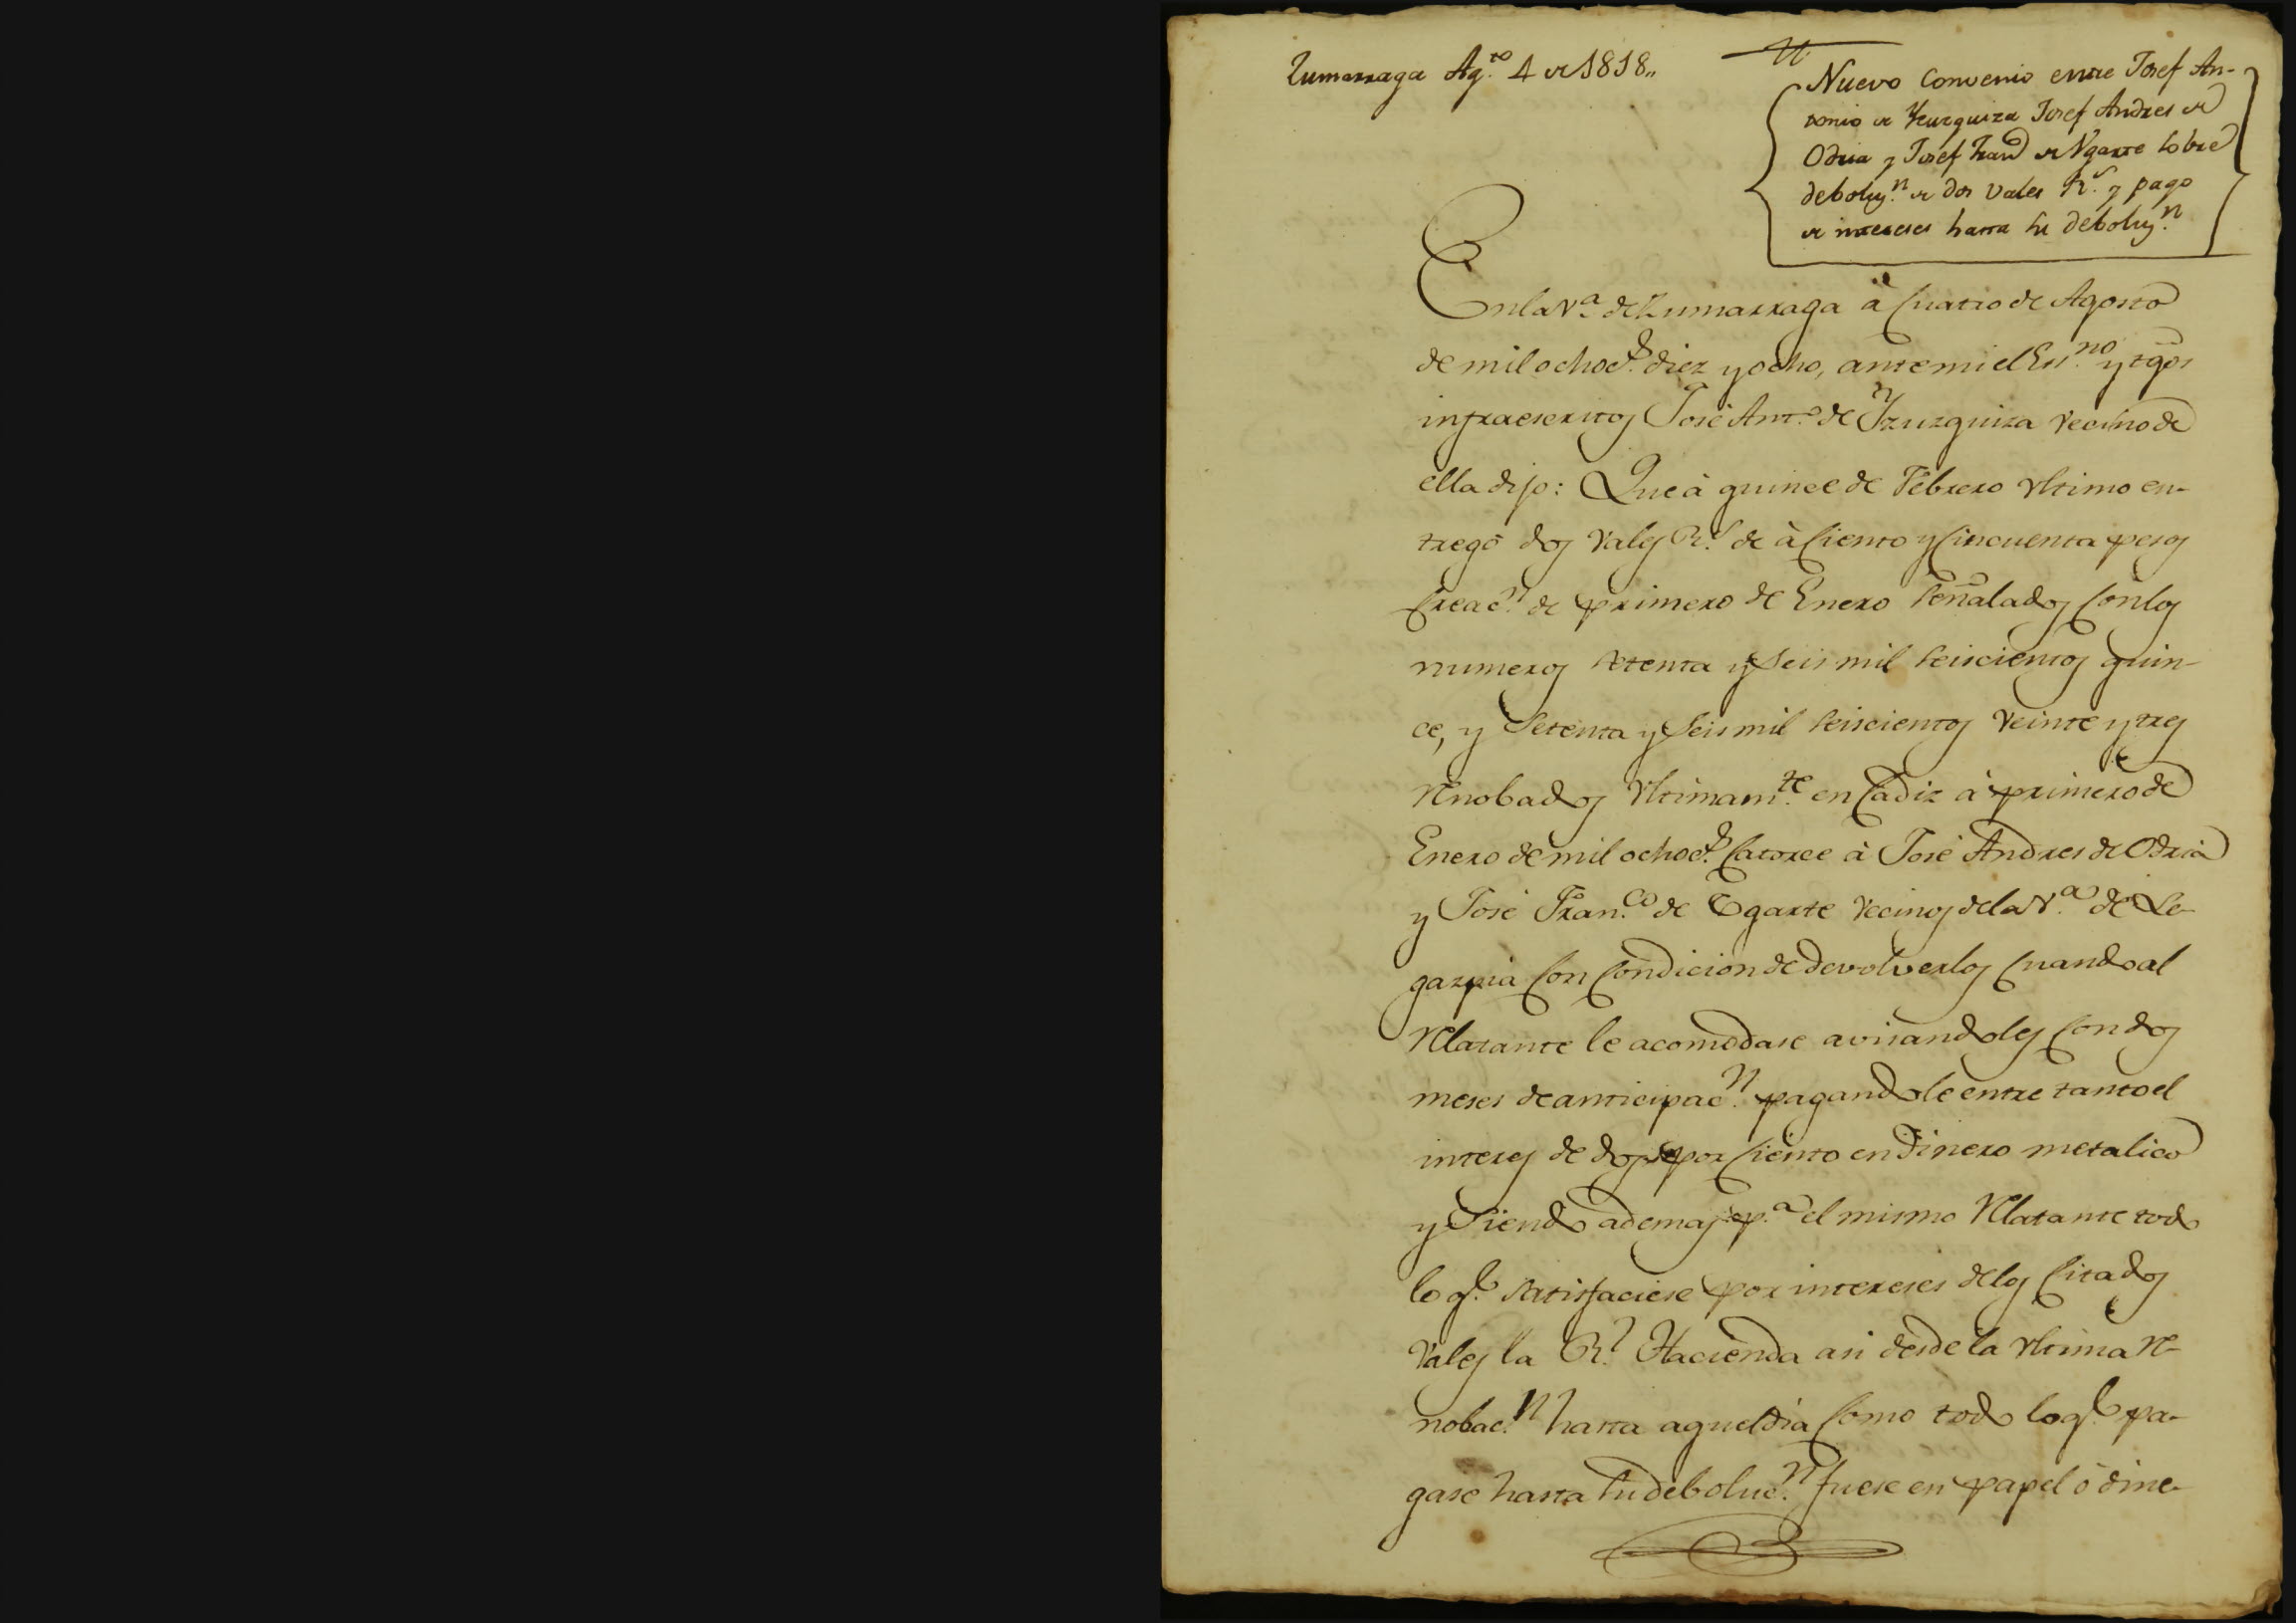 Zumarraga Ag.to 4 de 1818,,
Nuevo Convenio entre Josef An-
tonio de Yzurquiza Josef Andres de
Odria y Josef Fran.co de Vgarte sobre
deboluz.n de dos Vales R.s y pago
de intereses hasta su deboluz.n
En la V.a de Zumarraga à Cuatro de Agosto
de mil ochoc.s diez y ocho, ante mi el Ess.no y tgõs
infraescritos José Ant.o de Yzurquiza Vecino de
ella dijo: Que à quince de Febrero Vltimo en-
tregò dos Vales R.s de à Ciento y Cincuenta pesos
Creac.n de primero de Enero señalados Con los
numeros setenta y Seis mil seiscientos quin-
ce, y Setenta y Seis mil seiscientos Veinte y tres
Renobados Vltimam.te en Cadiz à primero de
Enero de mil ochoc.s Catorce à José Andres de Odria
y José Fran.co de Vgarte Vecinos de la V.a de Le-
gazpia Con Condicion de devolverlos Cuando al
Relatante le acomodase avisandoles Con dos
meses de anticipac.n pagandole entre tanto el
interes de dos por Ciento en dinero metalico
y Siendo ademas p.a el mismo Relatante todo
lo q.e satisfaciese por intereses de los Citados
Vales la R.l Hacienda asi desde la Vltima Re-
nobac.n hasta aquel dia Como todo lo q.e pa-
gase hasta su deboluc.n fuese en papel ò dine-